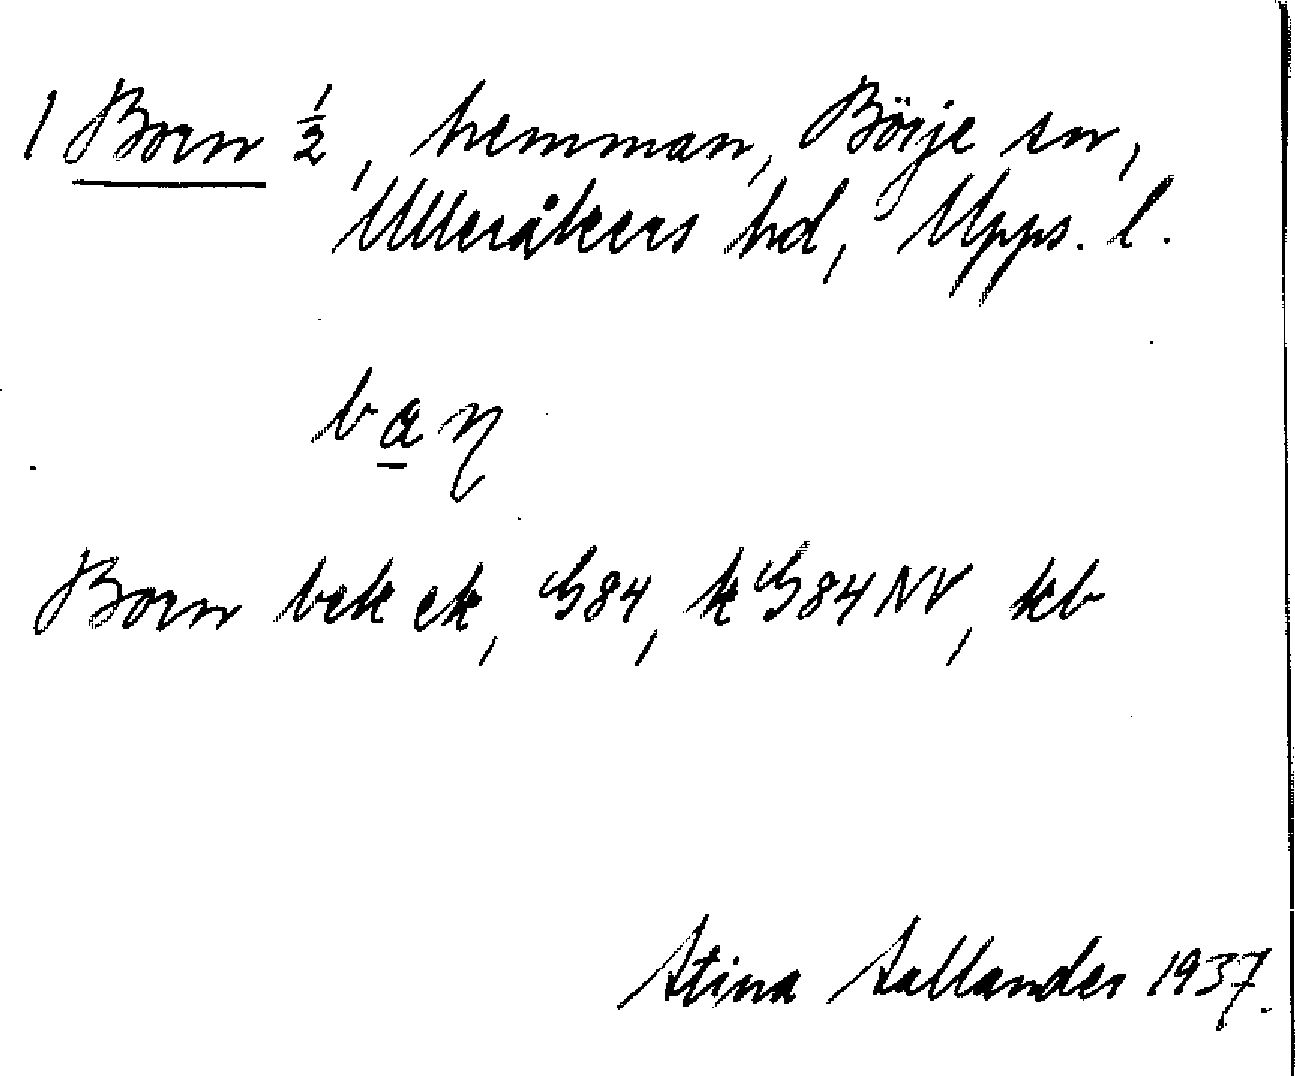 1 Born ½, hemman, Börje sn,
Ulleråkers hd, Upps. l.
ban
Born bek ek, G84, k G84NV, kb
Stina Sallander 1937.